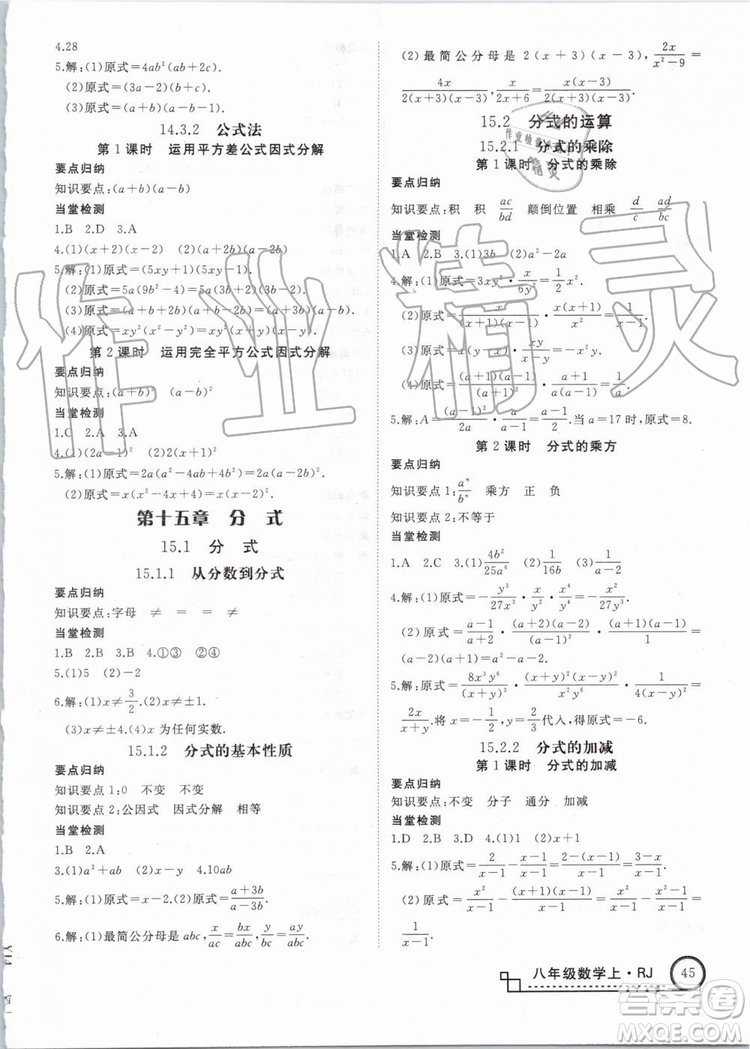 4.28
5.解:(1)原式=4ab²(ab+2c).
(2)原式=(3a-2)(b+c).
(3)原式=(a+b)(a+b-1).
14.3.2 公式法
第1课时 运用平方差公式因式分解
要点归纳
知识要点:(a+b)(a-b)
当堂检测
1.B 2.D 3.A
4.(1)(x+2)(x-2) (2)(a+2b)(a-2b)
5.解:(1)原式=(5xy+1)(5xy-1).
(2)原式=5a(9b²-4)=5a(3b+2)(3b-2).
(3)原式=(a+b+2b)(a+b-2b)=(a+3b)(a-b).
(4)原式=xy²(x²-y²)=xy²(x+y)(x-y).
第2课时 运用完全平方公式因式分解
要点归纳
知识要点:(a+b)² (a-b)²
当堂检测
1.C 2.A 3.A
4.(1)(2x-1)² (2)2(x-1)²
5.解:(1)原式=2a(a²+4ab+4b²)=2a(a+2b)².
(2)原式=x(x²-4x+4)=x(x-2)².
第十五章 分 式
15.1 分 式
15.1.1 从分数到分式
要点归纳
知识要点:字母 ≠ = = ≠
当堂检测
1.B 2.B 3.B 4.①③ ②④
5.(1)5 (2)-2
6.解:(1)x≠3/2.(2)x≠-2.
(3)x≠±4.(4)x为任何实数.
15.1.2 分式的基本性质
要点归纳
知识要点1:0 不变 不变
知识要点2:公因式 因式分解 相等
当堂检测
1.B 2.A
3.(1)a²+ab (2)x-y 4.10ab
5.解:(1)原式=x-2.(2)原式=(a+3b)/(a-3b).
6.解:(1)最简公分母是abc,x/ac=bx/abc,y/bc=ay/abc.
(2)最简公分母是2(x+3)(x-3),2x/(x²-9)=
4x/2(x+3)(x-3),x/(2x+6)=x(x-3)/2(x+3)(x-3).
15.2 分式的运算
15.2.1 分式的乘除
第1课时 分式的乘除
要点归纳
知识要点:积 积 ac/bd 颠倒位置 相乘 ad/bc
当堂检测
1.A 2.D 3.(1)3b (2)a²-2a
4.解:(1)原式=3xy²·x/6y=x²y/2.
5.解:A=(a-1)²/(a+1)(a-1)·(a+1)/2=(a-1)/2.当a=17时,原式=8.
第2课时 分式的乘方
要点归纳
知识要点1:aⁿ/bⁿ 乘方 正 负
知识要点2:不等于
当堂检测
1.A 2.C 3.(1)4b²/25a⁶ (2)1/16b (3)a/(a-2)
(2)原式=(a-1)/(a+2)²·(a+2)(a-2)/(a-1)²·(a+1)(a-1)/(a-2)
5.解:原式=
2x/(x+y).将x=1/2,y=-2/3代入,得原式=-6.
15.2.2 分式的加减
第1课时 分式的加减
要点归纳
知识要点:不变 分子 通分 加减
当堂检测
1.D 2.A 3.C 4.(1)1 (2)x+1
5.解:(1)原式=2/(x-1)-(x-1)/(x-1)=(3-x)/(x-1).
(2)原式=x²/(x-1)-(x+1)(x-1)/(x-1)=(x²-x²+1)/(x-1)=
1/(x-1).
八年级数学上·RJ 45
作业精灵
答案圈
MXQE.COM